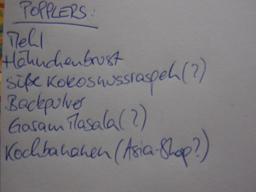 POPPLERS:
Mehl
Hähnchenbrust
süße Kokosnussraspeln (?)
Backpulver
Garam Masala (?)
Kochbananen (Asia-Shop?)